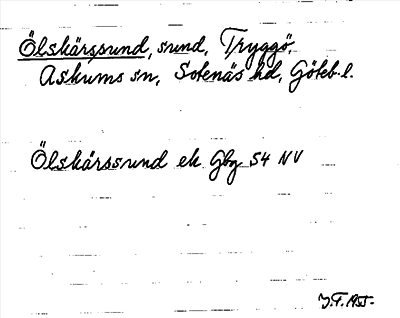 Ölskärssund, sund, Tryggö,
Askums sn, Sotenäs hd, Göteb. l.
Ölskärssund ek Gbg 54 NV